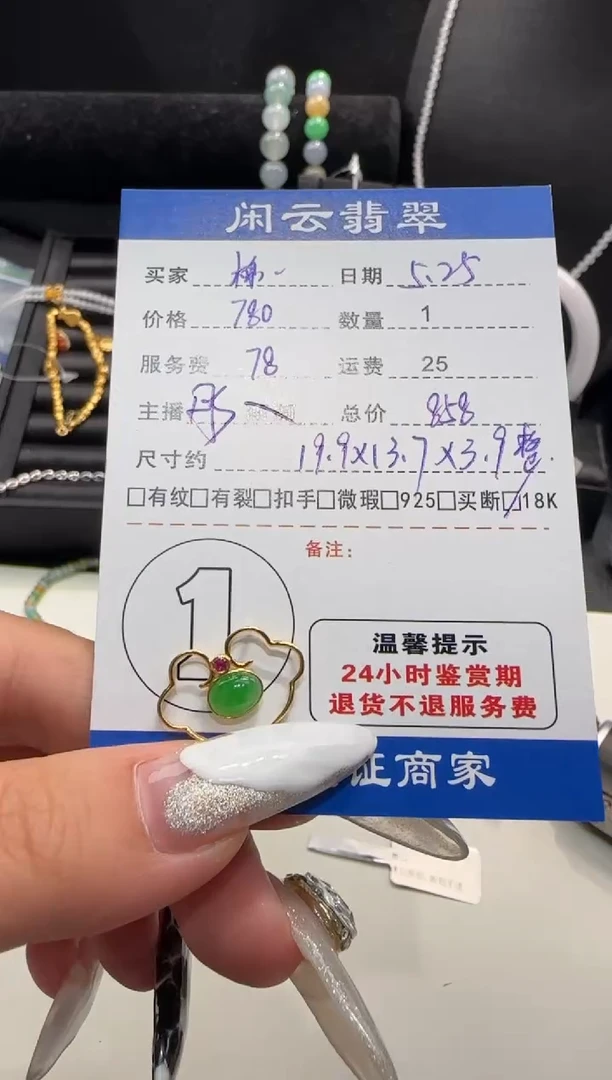 闲云翡翠
买家 日期 5.25
价格 780 数量 1
服务费 78 运费 25
主播 彤 总价 858
尺寸约 19.9×13.7×3.9整
□有纹□有裂□扣手□微瑕□925□买断□18K
备注：
1
温馨提示
24小时鉴赏期
退货不退服务费
证商家